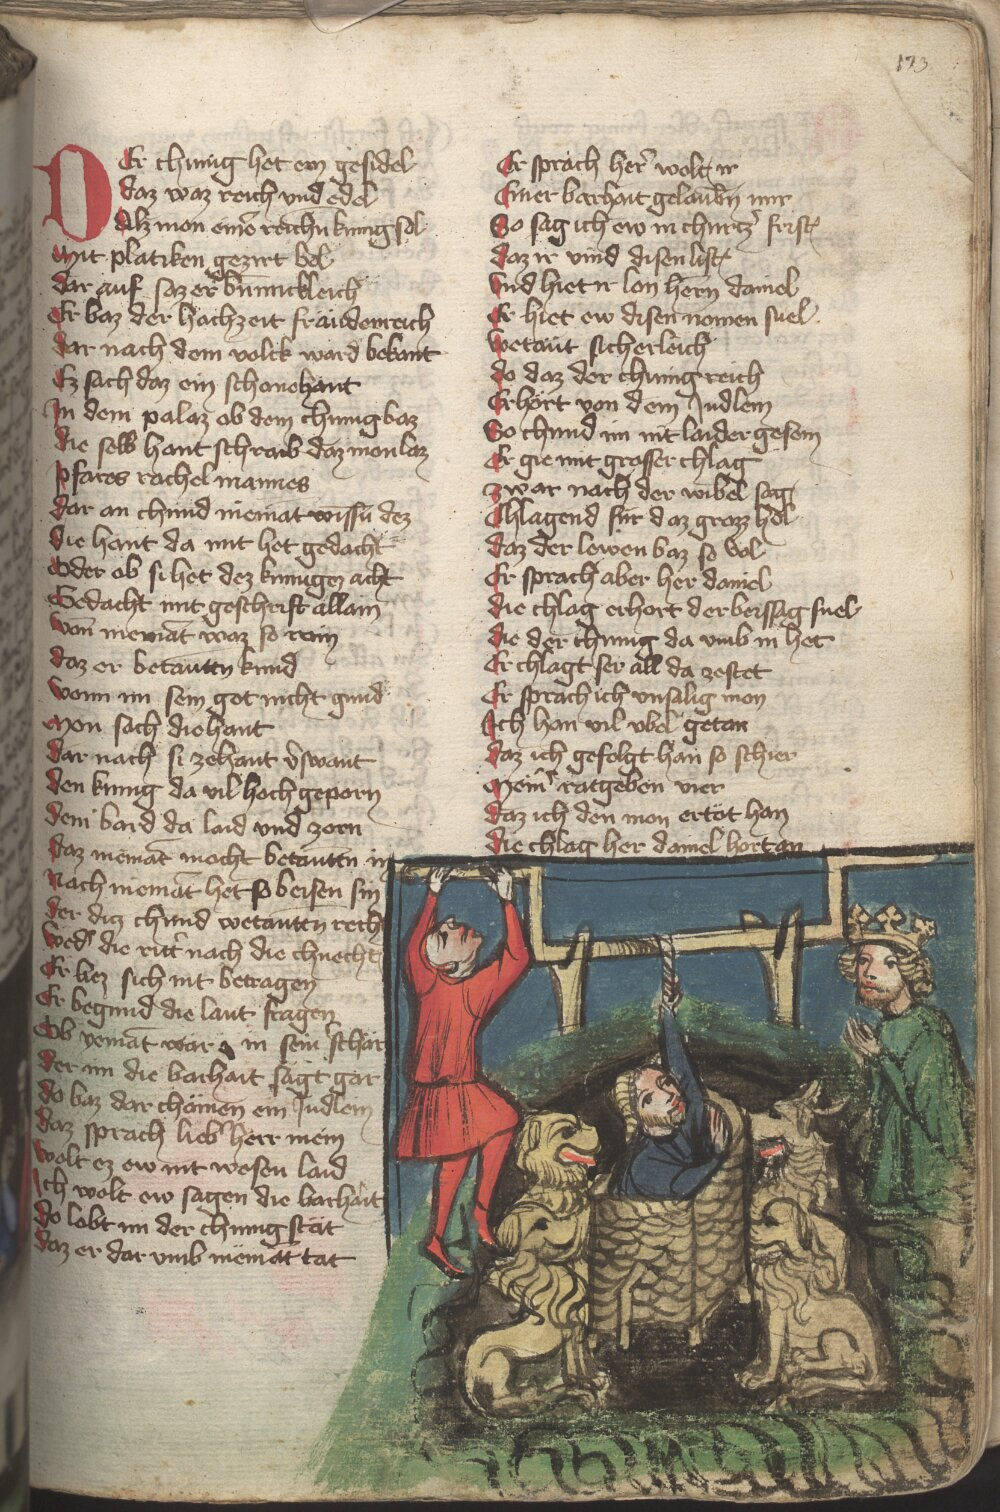 173
Der chunig het ein gesidel
daz waz reich vnd edel
Alz mon eine reichn kunig sol
mit platiken gezirt bol
dar auf saz er bunnickleich
Er baz der hachzeit fraudenreich
dar nach dem volck ward bekant
Ez sach daz ein schone hant
In dem palaz ob dem chunig baz
die selb hant schraib daz mon laz
phares rachel mannes
dar an chund niemat wissn dez
die hant da mit het gedacht
Oder ob si het dez kuniges acht
Gedacht mit geschrift allain
von niemat waz so rain
daz er betautn kund
wonn im sein got nicht gund
mon sach die hant
dar nach si zehant vswant
den kunig da vil hoch geporn
dem bard da laid vnd zorn
daz niemat mocht betauttn in
Nach niemat het so beisen sin
der diz chund wetautten recht
wed die ritt nach die chnecht
Er liez sich nit betragen
Er begund die laut fragen
Ob yemat war in sein schar
der im die barhait sagt gar
do baz dar chomen ein Judlein
daz sprach lieb herr mein
wolt ez ew nit wesen laid
Ich wolt ew sagen die barhait
do lobt im der chunig stat
daz er dar vmb niemat tat
Er sprach her wolt ir
Einer barhait gelaubn mir
So sag ich ew in churtz frist
daz ir vind disen list
Vnd hiet ir lon hern daniel
Er hiet ew disen nomen snel
betaut sicherleich
do daz der chunig reich
Erhort von dem Judlein
So chund im nit laider gesein
Er gie mit grosser chlag
zwar nach der wibel sag
Chlagend fur daz grozz hol
daz der lewen baz so vol
Er sprach aber her daniel
die chlag erhort der beissag snel
die der chunig da vmb in het
Er chlagt ser all da zestet
Er sprach ich vnsalig mon
Ich han vil vbel getan
daz ich gefolgt han so schier
meinr ratgeben vier
daz ich den mon ertöt han
die chlag her daniel hort an